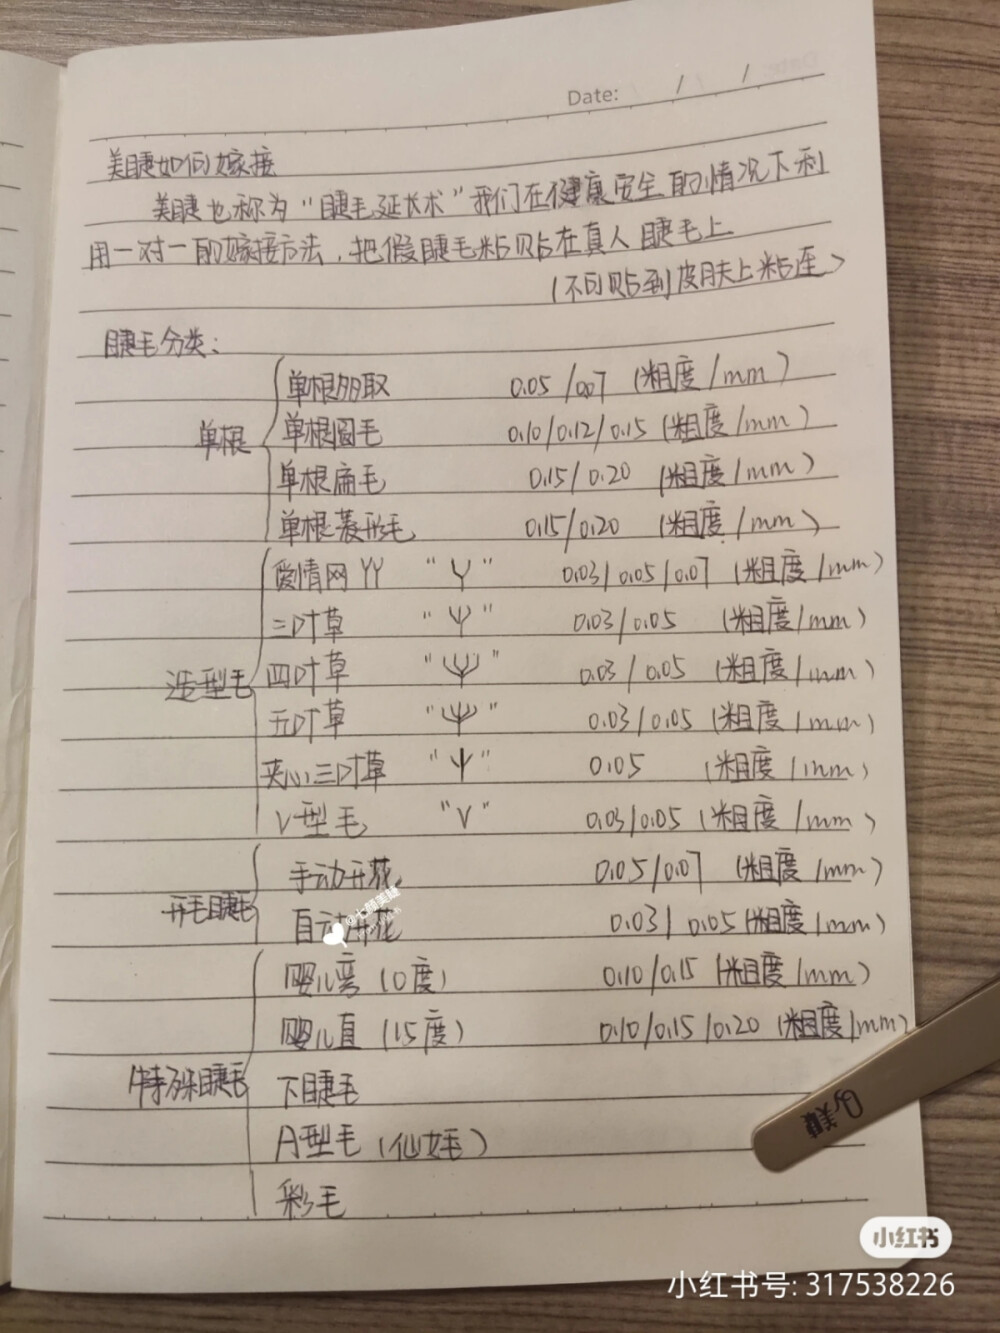 Date: / /
美睫如何嫁接
美睫也称为“睫毛延长术”我们在健康安全的情况下利
用一对一的嫁接方法,把假睫毛粘贴在真人睫毛上
(不可贴到皮肤上粘连)
睫毛分类:
单根
单根 0.05/0.07 (粗度/mm)
单根圆毛 0.10/0.12/0.15 (粗度/mm)
单根扁毛 0.15/0.20 (粗度/mm)
单根菱形毛 0.15/0.20 (粗度/mm)
造型毛
爱情网YY “Y” 0.03/0.05/0.07 (粗度/mm)
三叶草 “ ” 0.03/0.05 (粗度/mm)
四叶草 “ ” 0.03/0.05 (粗度/mm)
五叶草 “ ” 0.03/0.05 (粗度/mm)
夹心三叶草 “ ” 0.05 (粗度/mm)
V型毛 “V” 0.03/0.05 (粗度/mm)
开毛睫毛
手动开花 0.05/0.07 (粗度/mm)
自动开花 0.03/0.05 (粗度/mm)
特殊睫毛
婴儿弯(0度) 0.10/0.15 (粗度/mm)
婴儿直(15度) 0.10/0.15/0.20 (粗度/mm)
下睫毛
A型毛(仙女毛)
彩毛
美睫
小红书
小红书号: 317538226